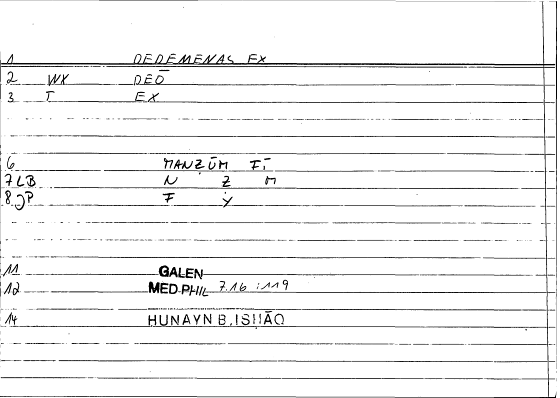 1 DEDEMENAS EX
2 WK DEŌ
3 T EX
6 MANẒŪM FĪ
7 LB N Ẓ M
8 JP F Y
11 GALEN
12 MED.PHIL 7.16 :119
14 HUNAYN B. ISḤĀQ